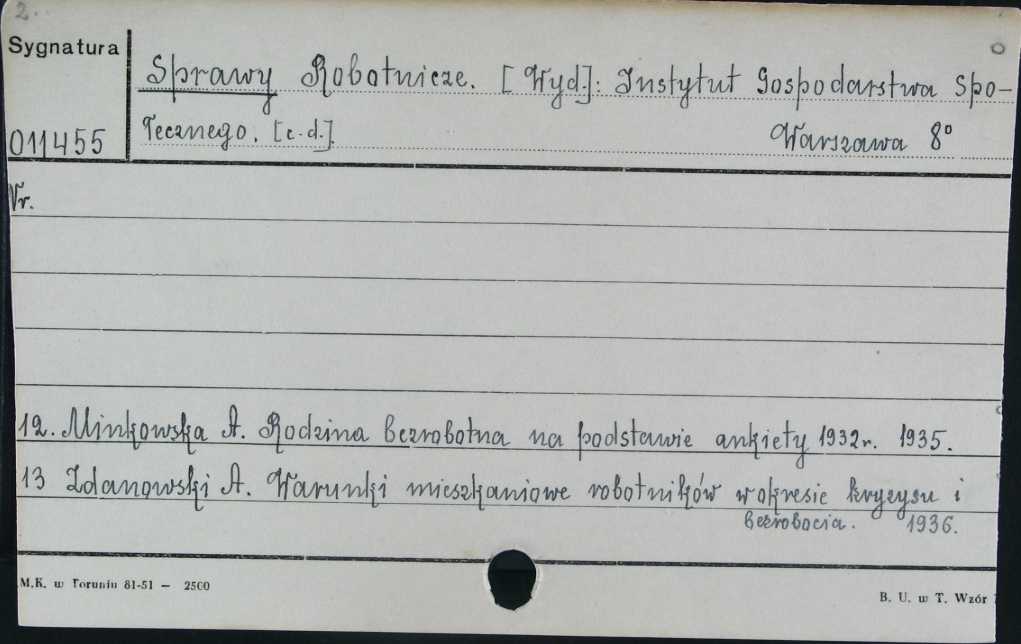 2.
Sygnatura
Sprawy Robotnicze. [Wyd.]: Instytut Gospodarstwa Spo-
011455
łecznego. [c.d.].
Warszawa 8°
Nr.
12. Minkowska A. Rodzina bezrobotna na podstawie ankiety 1932r. 1935.
13 Zdanowski A. Warunki mieszkaniowe robotników w okresie kryzysu i
bezrobocia. 1936.
M.K. w Toruniu 81-51 — 2500
B. U. w T. Wzór